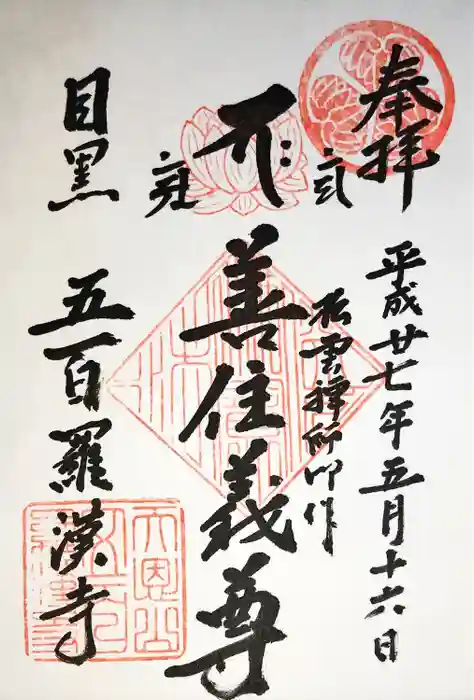 奉拝
平成廿七年五月十六日
松雲禅師御作
善住義尊
目黒
五百羅漢寺